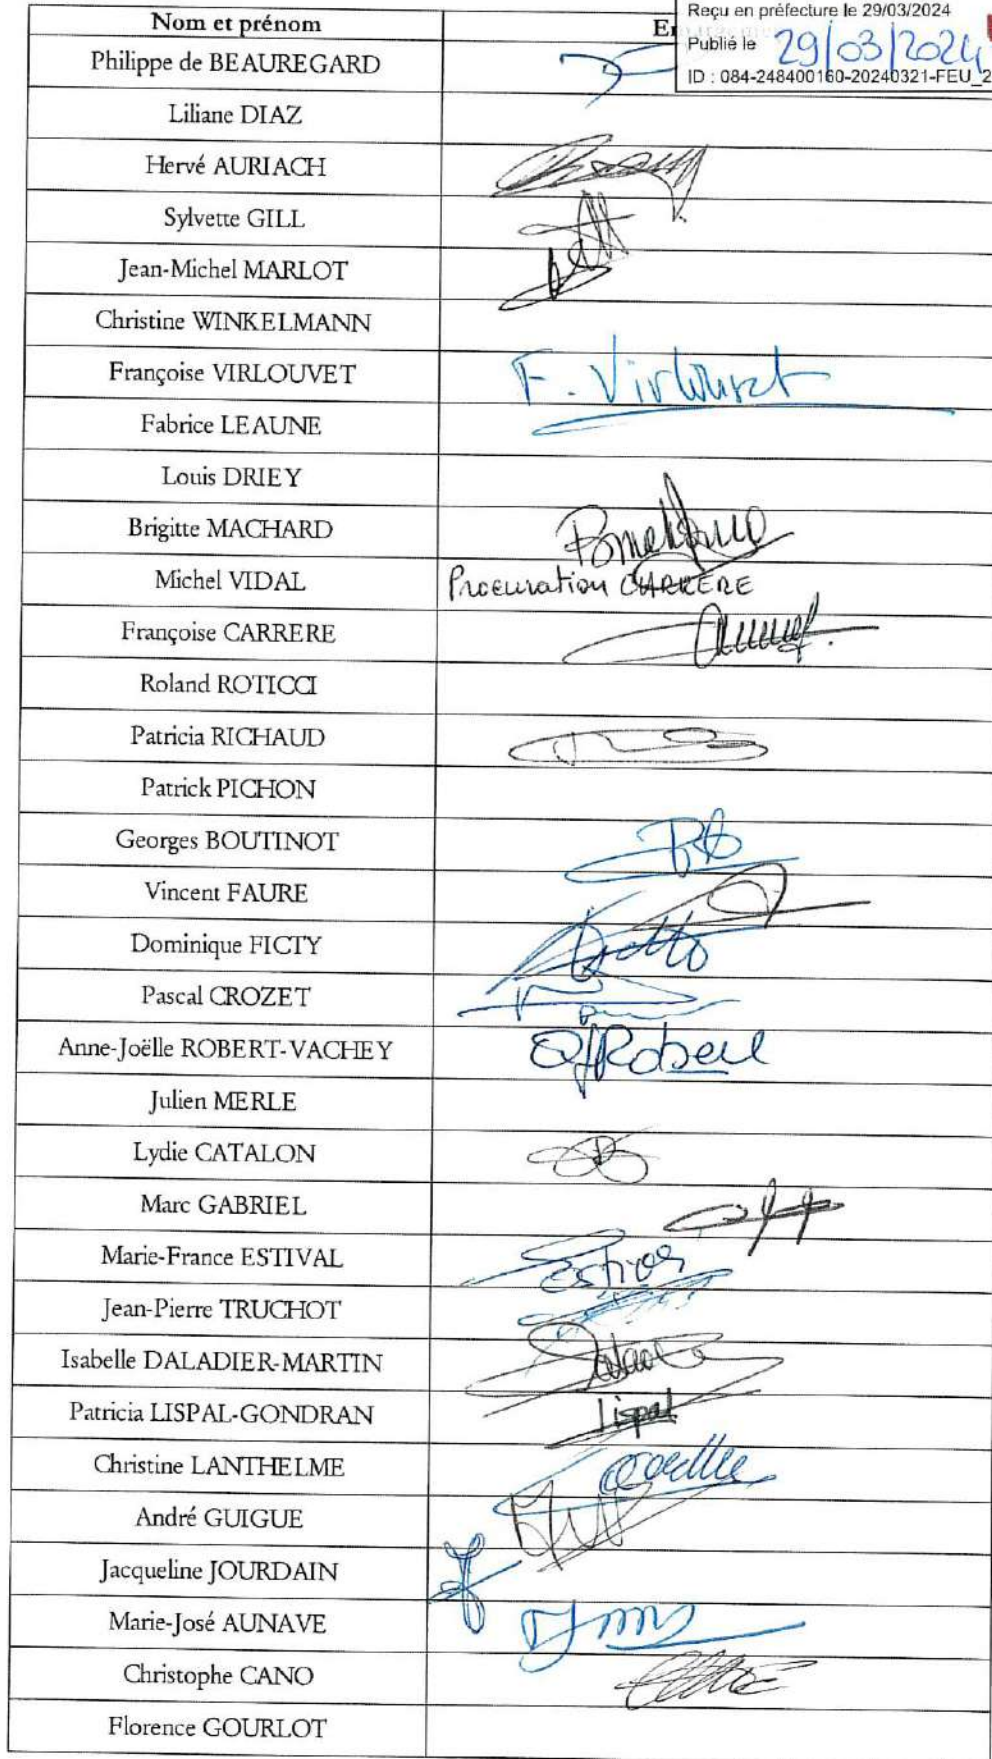 Reçu en préfecture le 29/03/2024
Publié le 29/03/2024
ID : 084-248400160-20240321-FEU_2
Nom et prénom
Philippe de BEAUREGARD
Liliane DIAZ
Hervé AURIACH
Sylvette GILL
Jean-Michel MARLOT
Christine WINKELMANN
Françoise VIRLOUVET F. Virlouvet
Fabrice LEAUNE
Louis DRIEY
Brigitte MACHARD
Michel VIDAL Procuration CARRERE
Françoise CARRERE
Roland ROTICCI
Patricia RICHAUD
Patrick PICHON
Georges BOUTINOT
Vincent FAURE
Dominique FICTY
Pascal CROZET
Anne-Joëlle ROBERT-VACHEY
Julien MERLE
Lydie CATALON
Marc GABRIEL
Marie-France ESTIVAL Estival
Jean-Pierre TRUCHOT
Isabelle DALADIER-MARTIN
Patricia LISPAL-GONDRAN Lispal
Christine LANTHELME
André GUIGUE
Jacqueline JOURDAIN
Marie-José AUNAVE
Christophe CANO
Florence GOURLOT